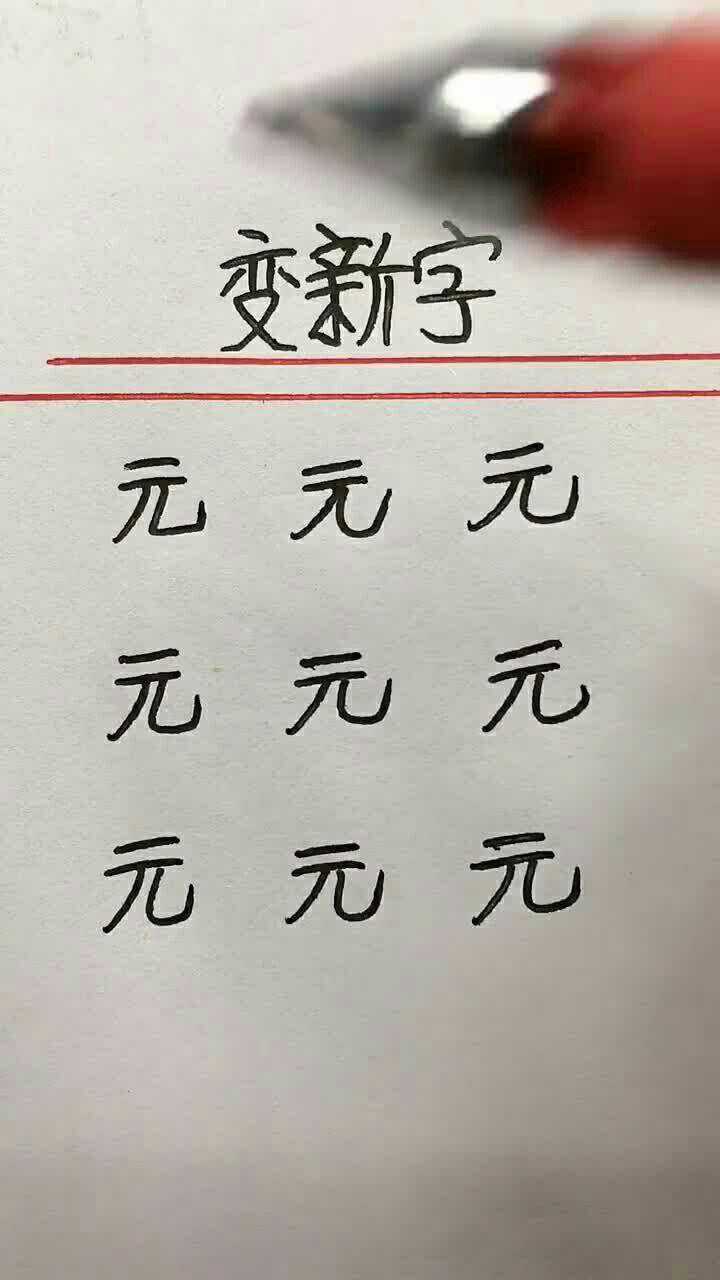 变新字
元 元 元
元 元 元
元 元 元